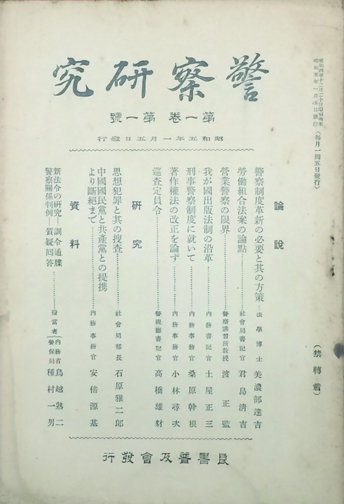 警察研究
第一卷 第一號
昭和五年一月五日發行
(毎月一回五日發行)
(禁轉載)
論說
警察制度革新の必要と其の方策 法學博士 美濃部達吉
勞働組合法案の論點 社會局書記官 君島淸吉
營業警察の限界 警察講習所敎授 渡正監
我が國出版法制の沿革 內務書記官 土屋正三
刑事警察制度に就いて 內務事務官 桑原幹根
著作權法の改正を論ず 內務事務官 小林尋次
巡査定員令 警視廳書記官 高橋雄豺
研究
思想犯罪と其の搜査 社會局部長 石原雅二郎
中國國民黨と共產黨との提携より斷絕まで 內務事務官 安倍源基
資料
新法令の研究—訓令通牒
警察關係判例—質疑回答
擔當者 內務省警保局 鳥越熟二 種村一男
良書普及會發行